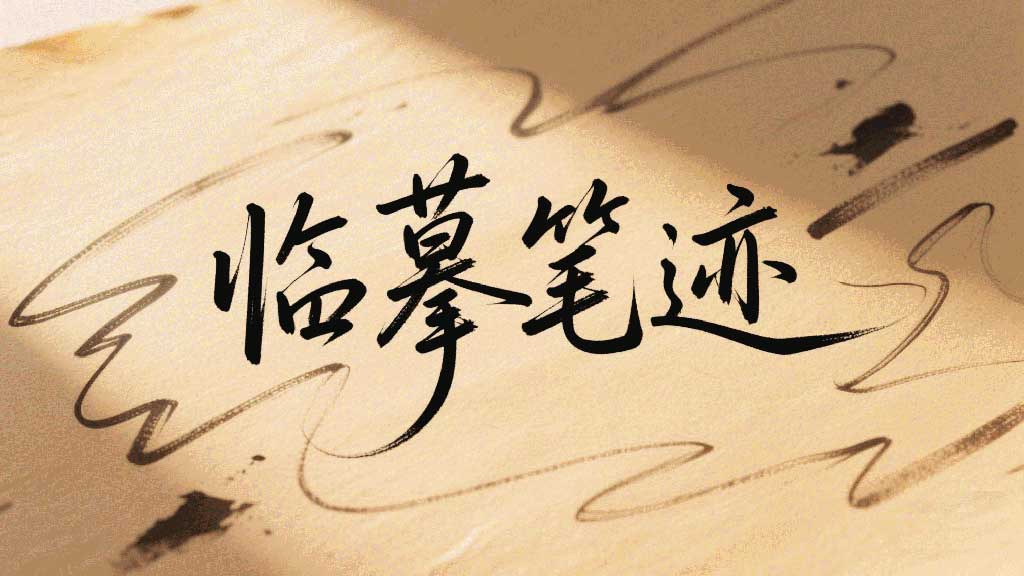 临摹笔迹